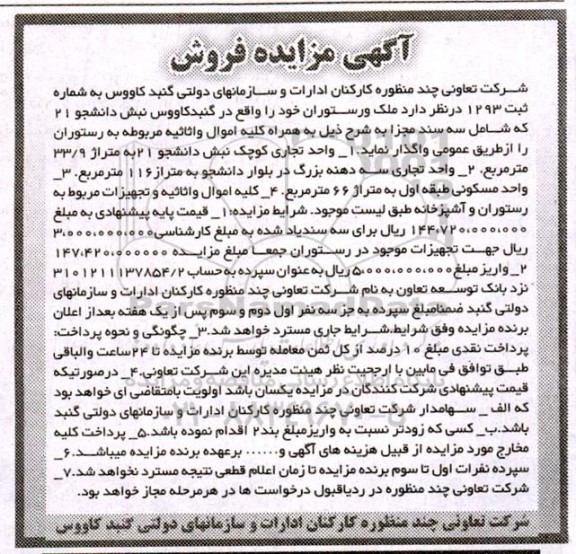 آگهی مزایده فروش
شرکت تعاونی چند منظوره کارکنان ادارات و سازمانهای دولتی گنبد کاووس به شماره
ثبت ۱۲۹۳ درنظر دارد ملک ورستوران خود را واقع در گنبدکاووس نبش دانشجو ۲۱
که شامل سه سند مجزا به شرح ذیل به همراه کلیه اموال واثاثیه مربوطه به رستوران
را ازطریق عمومی واگذار نماید.۱_ واحد تجاری کوچک نبش دانشجو ۲۱به متراژ ۳۳/۹
مترمربع. ۲_ واحد تجاری سه دهنه بزرگ در بلوار دانشجو به متراژ۱۱۶ مترمربع. ۳_
واحد مسکونی طبقه اول به متراژ ۶۶ مترمربع. ۴_ کلیه اموال واثاثیه و تجهیزات مربوط به
رستوران و آشپزخانه طبق لیست موجود. شرایط مزایده:۱_ قیمت پایه پیشنهادی به مبلغ
۱۴۴,۷۲۰,۰۰۰,۰۰۰ ریال برای سه سندیاد شده به مبلغ کارشناسی۳,۰۰۰,۰۰۰,۰۰۰
ریال جهت تجهیزات موجود در رستوران جمعا مبلغ مزایده ۱۴۷,۴۲۰,۰۰۰۰۰۰
۲_ واریز مبلغ ۵,۰۰۰,۰۰۰,۰۰۰ ریال به عنوان سپرده به حساب ۳۱۰۱۲۱۱۱۳۷۸۵۴/۲
نزد بانک توسعه تعاون به نام شرکت تعاونی چند منظوره کارکنان ادارات و سازمانهای
دولتی گنبد ضمنامبلغ سپرده به جز سه نفر اول دوم و سوم پس از یک هفته بعداز اعلان
برنده مزایده وفق شرایط،شرایط جاری مسترد خواهد شد.۳_ چگونگی و نحوه پرداخت:
پرداخت نقدی مبلغ ۱۰درصد از کل ثمن معامله توسط برنده مزایده تا ۲۴ساعت والباقی
طبق توافق فی مابین با ارجحیت نظر هیئت مدیره این شرکت تعاونی.۴_ درصورتیکه
قیمت پیشنهادی شرکت کنندگان در مزایده یکسان باشد اولویت بامتقاضی ای خواهد بود
که الف _ سهامدار شرکت تعاونی چند منظوره کارکنان ادارات و سازمانهای دولتی گنبد
باشد.ب_ کسی که زودتر نسبت به واریزمبلغ بند۲ اقدام نموده باشد.۵_ پرداخت کلیه
مخارج مورد مزایده از قبیل هزینه های آگهی و...... برعهده برنده مزایده میباشد.۶_
سپرده نفرات اول تا سوم برنده مزایده تا زمان اعلام قطعی نتیجه مسترد نخواهد شد.۷_
شرکت تعاونی چند منظوره در ردیاقبول درخواست ها در هرمرحله مجاز خواهد بود.
شرکت تعاونی چند منظوره کارکنان ادارات و سازمانهای دولتی گنبد کاووس